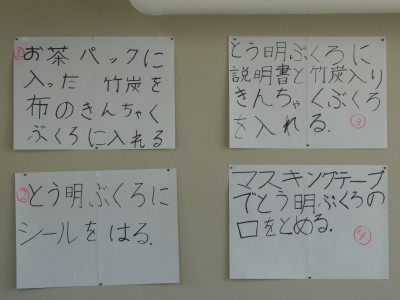 ①お茶パックに
入った 竹炭を
布のきんちゃく
ぶくろに入れる
②とう明ぶくろに
シールをはる.
とう明ぶくろに
説明書と竹炭入り
きんちゃくぶくろ
を入れる. ③
マスキングテープ
でとう明ぶくろの
口をとめる. ④